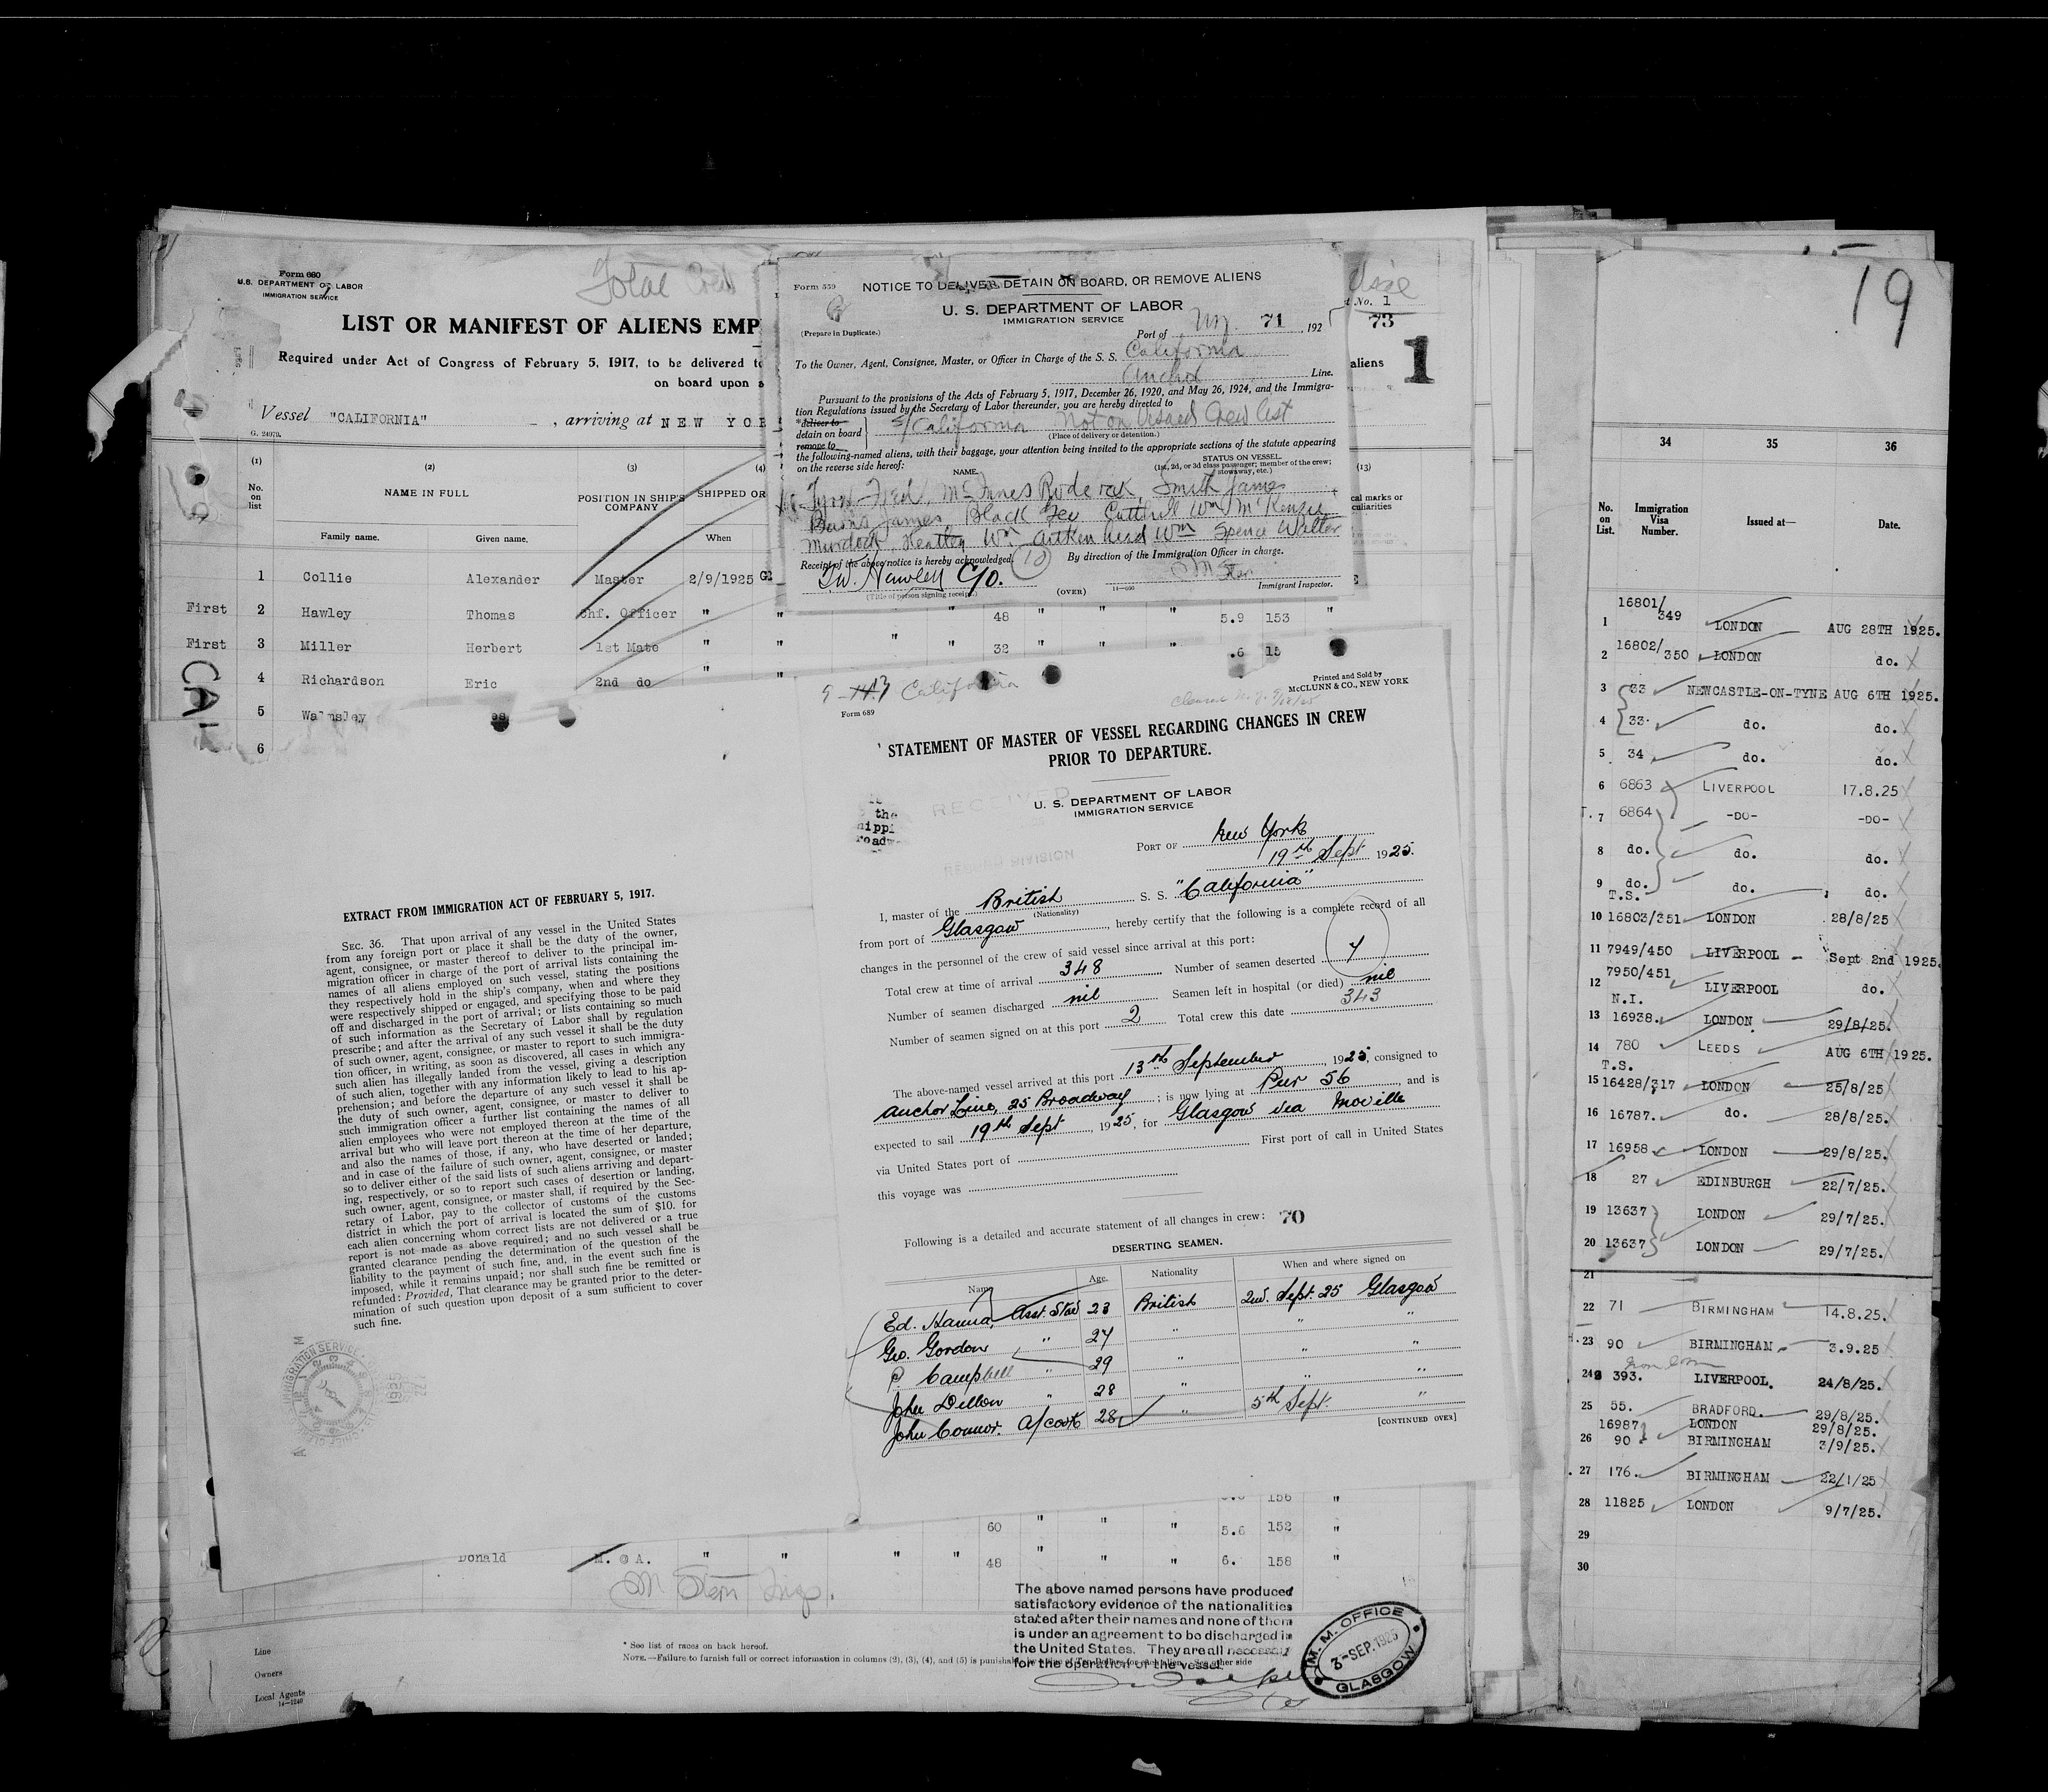 Form 680
U.S. DEPARTMENT OF LABOR
IMMIGRATION SERVICE
Total Crew
LIST OR MANIFEST OF ALIENS EMP
Required under Act of Congress of February 5, 1917, to be delivered to
on board upon a
Vessel "CALIFORNIA" , arriving at NEW YOR
G. 24979.
(1) (2) (3) (4)
No. on list
NAME IN FULL
POSITION IN SHIP'S COMPANY
SHIPPED OR
Family name. Given name. When
1 Collie Alexander Master 2/9/1925
First 2 Hawley Thomas Chf. Officer " " " 48 " " " 5.9 153 "
First 3 Miller Herbert 1st Mate " " " " 32 " " " .6 15
4 Richardson Eric 2nd do "
5 Walmsley es
6
CAL
Form 559
NOTICE TO DELIVER, DETAIN ON BOARD, OR REMOVE ALIENS
U. S. DEPARTMENT OF LABOR
IMMIGRATION SERVICE
(Prepare in Duplicate.)
Port of N.Y. 71 , 192
To the Owner, Agent, Consignee, Master, or Officer in Charge of the S. S. California
Anchor Line.
Pursuant to the provisions of the Acts of February 5, 1917, December 26, 1920, and May 26, 1924, and the Immigra-
tion Regulations issued by the Secretary of Labor thereunder, you are hereby directed to
*deliver to
detain on board
remove to
S/California Not on Visaed Crew list
(Place of delivery or detention.)
the following-named aliens, with their baggage, your attention being invited to the appropriate sections of the statute appearing
on the reverse side hereof:
NAME.
STATUS ON VESSEL
(1st, 2d, or 3d class passenger; member of the crew; stowaway, etc.)
Fred, McInnes Roderick, Smith James
Burns James, Black Geo Cutthill Wm McKenzie
Murdock, Heatley Wm Aitkenhead Wm Spence Walter
Receipt of the above notice is hereby acknowledged. 10 By direction of the Immigration Officer in charge.
T.W. Hawley C/O. M Stern
(Title of person signing receipt.) (OVER) Immigrant Inspector.
Visae
t No. 1
73
aliens 1
(13)
cal marks or
culiarities
5-113 California
Cleared N.Y. 9/18/25
Printed and Sold by
McCLUNN & CO., NEW YORK
Form 689
STATEMENT OF MASTER OF VESSEL REGARDING CHANGES IN CREW
PRIOR TO DEPARTURE.
RECEIVED
U. S. DEPARTMENT OF LABOR
IMMIGRATION SERVICE
the
hippi
roadw
RECORD DIVISION
PORT OF New York
19th Sept 1925.
I, master of the British S. S. "California"
(Nationality)
from port of Glasgow, hereby certify that the following is a complete record of all
changes in the personnel of the crew of said vessel since arrival at this port:
Total crew at time of arrival 348 Number of seamen deserted 7
Number of seamen discharged nil Seamen left in hospital (or died) nil
Number of seamen signed on at this port 2 Total crew this date 343
The above-named vessel arrived at this port 13th September, 1925, consigned to
Anchor Line, 25 Broadway ; is now lying at Pier 56, and is
expected to sail 19th Sept, 1925, for Glasgow via Moville
via United States port of First port of call in United States
this voyage was
Following is a detailed and accurate statement of all changes in crew: 70
DESERTING SEAMEN.
Name Age. Nationality When and where signed on
Ed. Hanna, Asst. Stwd 23 British 2nd. Sept. 25 Glasgow
Geo. Gordon " 27 " " "
P Campbell " 29 " " "
John Dillon " 28 " " "
John Connor. A/cook 28 " 5th Sept. "
[CONTINUED OVER]
EXTRACT FROM IMMIGRATION ACT OF FEBRUARY 5, 1917.
SEC. 36. That upon arrival of any vessel in the United States
from any foreign port or place it shall be the duty of the owner,
agent, consignee, or master thereof to deliver to the principal im-
migration officer in charge of the port of arrival lists containing the
names of all aliens employed on such vessel, stating the positions
they respectively hold in the ship's company, when and where they
were respectively shipped or engaged, and specifying those to be paid
off and discharged in the port of arrival; or lists containing so much
of such information as the Secretary of Labor shall by regulation
prescribe; and after the arrival of any such vessel it shall be the duty
of such owner, agent, consignee, or master to report to such immigra-
tion officer, in writing, as soon as discovered, all cases in which any
such alien has illegally landed from the vessel, giving a description
of such alien, together with any information likely to lead to his ap-
prehension; and before the departure of any such vessel it shall be
the duty of such owner, agent, consignee, or master to deliver to
such immigration officer a further list containing the names of all
alien employees who were not employed thereon at the time of the
arrival but who will leave port thereon at the time of her departure,
and also the names of those, if any, who have deserted or landed;
and in case of the failure of such owner, agent, consignee, or master
so to deliver either of the said lists of such aliens arriving and depart-
ing, respectively, or so to report such cases of desertion or landing,
such owner, agent, consignee, or master shall, if required by the Sec-
retary of Labor, pay to the collector of customs of the customs
district in which the port of arrival is located the sum of $10. for
each alien concerning whom correct lists are not delivered or a true
report is not made as above required; and no such vessel shall be
granted clearance pending the determination of the question of the
liability to the payment of such fine, and, in the event such fine is
imposed, while it remains unpaid; nor shall such fine be remitted or
refunded: Provided, That clearance may be granted prior to the deter-
mination of such question upon deposit of a sum sufficient to cover
such fine.
156 "
60 " " " 5.6 152 "
Donald M. @ A. " " " " 48 " " " 6. 158 "
M Stern Insp.
The above named persons have produced
satisfactory evidence of the nationalities
stated after their names and none of them
is under an agreement to be discharged in
the United States. They are all necessary
for the operation of the vessel.
IMM. OFFICE
3-SEP.1925
GLASGOW
* See list of races on back hereof.
NOTE.—Failure to furnish full or correct information in columns (2), (3), (4), and (5) is punishable
Line
Owners
Local Agents
14—1240
19
34 35 36
No. on List. Immigration Visa Number. Issued at— Date.
1 16801/349 LONDON AUG 28TH 1925.
2 16802/350 LONDON do.
3 33 NEWCASTLE-ON-TYNE AUG 6TH 1925.
4 33. do. do.
5 34 do. do.
6 6863 LIVERPOOL 17.8.25
T. 7 6864 -DO- -DO-
8 do. do. do.
9 do. do. do.
T.S.
10 16803/351 LONDON 28/8/25
11 7949/450 LIVERPOOL Sept 2nd 1925.
12 7950/451 LIVERPOOL do.
N.I.
13 16938. LONDON 29/8/25.
14 780 LEEDS AUG 6TH 1925.
T.S.
15 16428/317 LONDON 25/8/25
16 16787. do. 28/8/25.
17 16958 LONDON 29/8/25.
18 27 EDINBURGH 22/7/25.
19 13637 LONDON 29/7/25.
20 13637 LONDON 29/7/25.
21
22 71 BIRMINGHAM 14.8.25.
23 90 BIRMINGHAM 3.9.25
24 393. LIVERPOOL. 24/8/25.
25 55. BRADFORD. 29/8/25.
16987 LONDON 29/8/25.
26 90 BIRMINGHAM 3/9/25.
27 176. BIRMINGHAM 22/1/25
28 11825 LONDON 9/7/25.
29
30